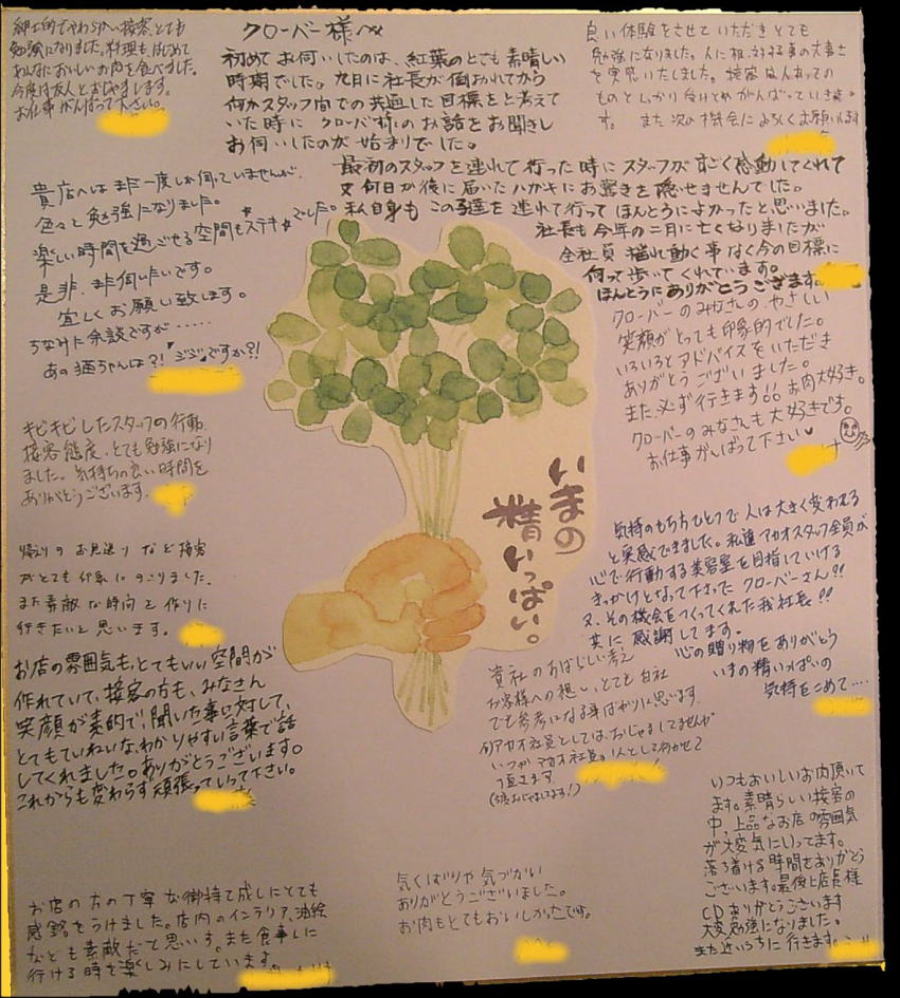 クローバー様へ
初めてお伺いしたのは、紅葉のとても素晴しい
時期でした。九月に社長が倒おれてから
何かスタッフ間での共通した目標をと考えて
いた時に クローバー様のお話をお聞きし
お伺いしたのが 始まりでした。
最初のスタッフを連れて行った時に スタッフが すごく感動してくれて
又 何日か後に届いたハガキにお驚きを隠せませんでした。
私自身も この子達を連れて行って ほんとうによかったと思いました。
社長も今年の二月に亡くなりましたが
全社員 揺れ動く事なく今の目標に
向って歩いてくれています。
ほんとうにありがとうござぎます。
紳士的でやわらかい接客、とても
勉強になりました。料理も、はじめて
あんなにおいしいお肉を食べました。
今度は友人とおじゃまします。
お仕事がんばって下さい。
良い体験をさせていただきとても
勉強になりました。人に
を実感いたしました。接客は人あっての
ものとしっかり受けとめがんばっていきま
す。 また次の機会によろしくお願いします
貴店へはまだ一度しか伺っていませんが、
色々と勉強になりました。
楽しい時間を過ごせる空間もステキ☆でした。
是非、また伺いたいです。
宜しくお願い致します。
ちなみに余談ですが……
あの猫ちゃんは?!『ジジ』ですか?!
クローバーのみなさんのやさしい
笑顔がとっても印象的でした。
いろいろとアドバイスをいただき
ありがとうございました。
また、必ず行きます!! お肉大好き。
クローバーのみなさんも大好きです。
お仕事がんばって下さい♥
キビキビしたスタッフの行動、
接客態度、とても勉強になり
ました。気持ちの良い時間を
ありがとうございます。
いまの
精いっぱい。
気持のもち方ひとつで人は大きく変われる
と実感できました。私達アカオスタッフ全員が
心で行動する美容室を目指していける
きっかけとなって下さった クローバーさん!!
又、その機会をつくってくれた我社長!!
共に 感謝してます。
心の贈り物をありがとう
いまの精いっぱいの
気持をこめて‥‥
帰りのお見送りなど接客
がとても印象にのこりました。
また素敵な時間を作りに
行きたいと思います。
お店の雰囲気も、とてもいい空間が
作れていて、接客の方も、みなさん
笑顔が素的で、聞いた事に対して、
とてもていねいな、わかりやすい言葉で話
してくれました。ありがとうございます。
これからも変わらず頑張っていって下さい。
貴社のすばらしい考え
お客様への想い、とても自社
でも参考になる事ばかりに思います。
アカオ社員としては、おじゃましてませんが
いつかアカオ社員の1人として行かせて
頂きます。
いつもおいしいお肉頂いて
ます。素晴らしい接客の
中、上品なお店の雰囲気
が大変気にいってます。
落ち着ける時間をありがとう
ございます。最後に店長様
CDありがとうございます
大変勉強になりました。
また近いうちに行きます。
お店の方の丁寧な御持て成しにとても
感銘をうけました。店内のインテリア、油絵
なども素敵だと思います。また食事に
行ける時を楽しみにしています。
気くばりや気づかい
ありがとうございました。
お肉もとてもおいしかったです。